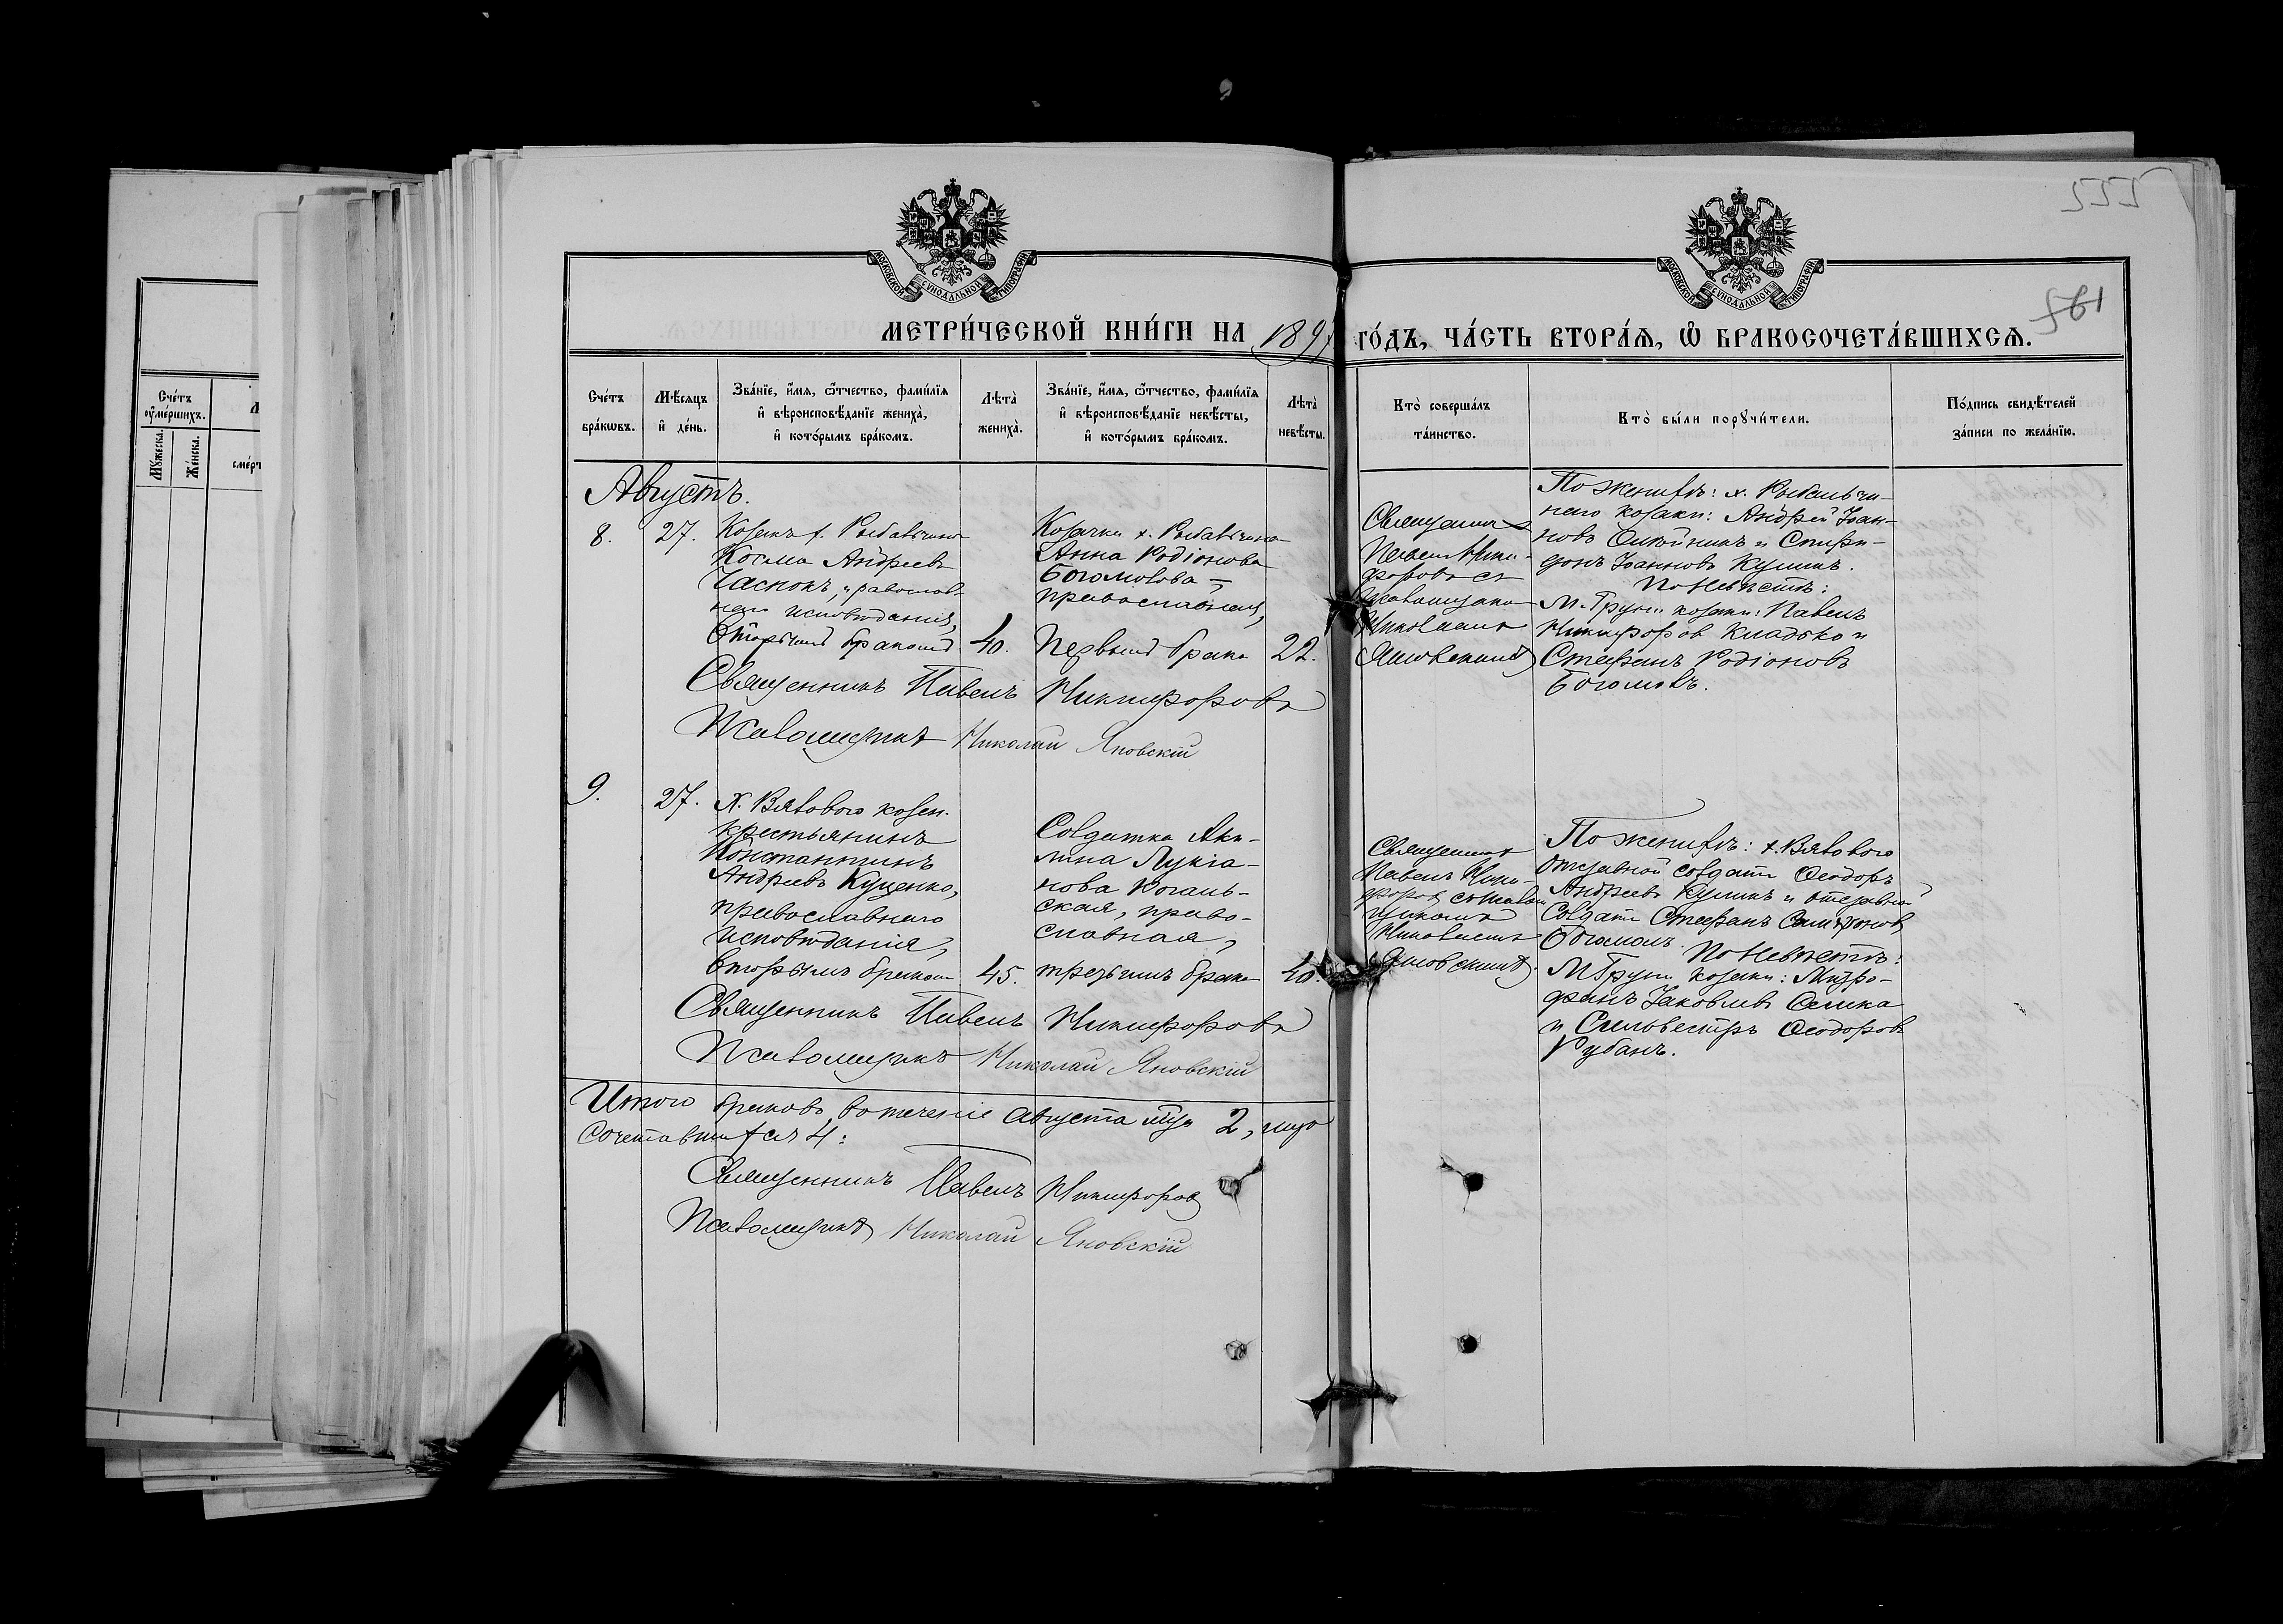 МОСКОВСКОЙ СѴНОДАЛЬНОЙ ТИПОГРАФІИ
МОСКОВСКОЙ СѴНОДАЛЬНОЙ ТИПОГРАФІИ
МЕТРИ́ЧЕСКОЙ КНИ́ГИ НА 189 ГО́ДЪ, ЧА́СТЬ ВТОРА́Ѧ, Ѡ҆ БРАКОСОЧЕТА́ВШИХСѦ.
Сче́тъ
ᲂу҆ме́ршихъ.
Му́жеска.
Же́нска.
Сче́тъ
бра́кѡвъ.
Мѣ́сяцъ
и҆ де́нь.
Зва́нїе, и҆́мя, ѻ҆́тчество, фами́лїя
и҆ вѣроисповѣ́данїе жениха̀,
и҆ кото́рымъ бра́комъ.
Лѣта̀
жениха̀.
Зва́нїе, и҆́мя, ѻ҆́тчество, фами́лїя
и҆ вѣроисповѣ́данїе невѣ́сты,
и҆ кото́рымъ бра́комъ.
Лѣта̀
невѣ́сты.
Кто̀ соверша́лъ
та́инство.
Кто̀ бы́ли порꙋчи́тели.
По́дпись свидѣ́телей
за́писи по жела́нїю.
Августъ.
8.
27.
Козакъ х.
Косма Андреевъ
исповѣданія,
Вторымъ бракомъ
40.
Козачка х.
Анна Родіонова
Богомолова
православная,
Первымъ бракомъ
22.
Священникъ
Павелъ Ники-
форовъ съ
псаломщикомъ
Николаемъ
Яновскимъ
По женихѣ: х.
козаки: Андрей Іоан-
новъ Олейникъ и Спири-
донъ Іоанновъ Куликъ.
По невѣстѣ:
м. Груни козаки: Павелъ
Никифоровъ Кладько и
Стефанъ Родіоновъ
Богомолъ.
Священникъ Павелъ Никифоровъ
Псаломщикъ Николай Яновскій
9.
27.
Х. Вялового козен.
крестьянинъ
Константинъ
Андреевъ Куценко,
православнаго
исповѣданія,
вторымъ бракомъ
45.
Солдатка Аки-
лина Лукіа-
нова Рогаль-
ская, право-
славная,
третьимъ бракомъ
40.
Священникъ
Павелъ Ники-
форовъ съ псалом-
щикомъ
Николаемъ
Яновскимъ.
По женихѣ: х. Вялового
отставной солдатъ Ѳеодоръ
Андреевъ Куликъ и отставной
солдатъ Стефанъ
Богомолъ. По невѣстѣ:
м. Груни козаки: Митро-
фанъ Іаковлевъ
и Сильвестръ Ѳеодоровъ
Рубанъ.
Священникъ Павелъ Никифоровъ
Псаломщикъ Николай Яновскій
Итого браковъ въ теченіе Августа мѣсяца 2, лицъ
сочетавшихся 4:
Священникъ Павелъ Никифоровъ
Псаломщикъ Николай Яновскій